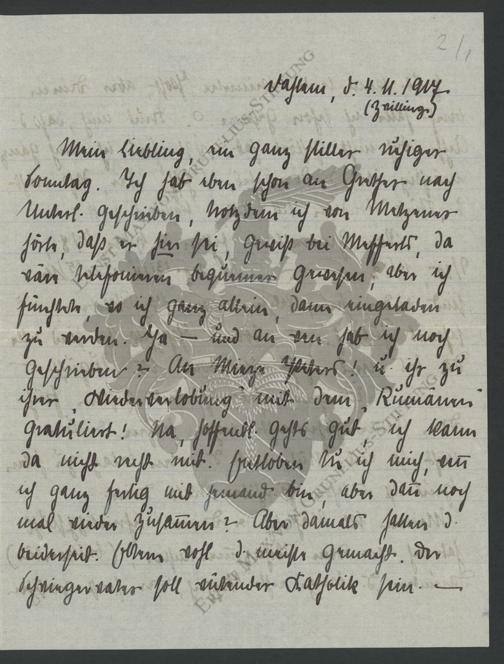 2/1
Dahlem, d. 4.11.1917
(Zwillinge)
Mein Liebling, ein ganz stiller ruhiger
Sonntag. Ich hab eben schon an Grether nach
Unterl. geschrieben, trotzdem ich von Metzener
hörte, daß er hier sei, gewiß bei Mefferts, da
wäre telefonieren bequemer gewesen, aber ich
fürchtete, wo ich ganz allein, dann eingeladen
zu werden. Ja — und an wen hab ich noch
geschrieben? An Mieze ! u. ihr zu
ihrer Wiederverlobung mit dem "Rumänen"
gratuliert! Na, hoffentl. gehts gut – ich kann
da nicht recht mit. Entloben tu ich mich, wenn
ich ganz fertig mit jemand bin, aber dann noch
mal wieder zusammen? Aber damals hatten d.
beiderseit. Eltern wohl d. meiste gemacht. Der
Schwiegervater soll wütender Katholik sein. —